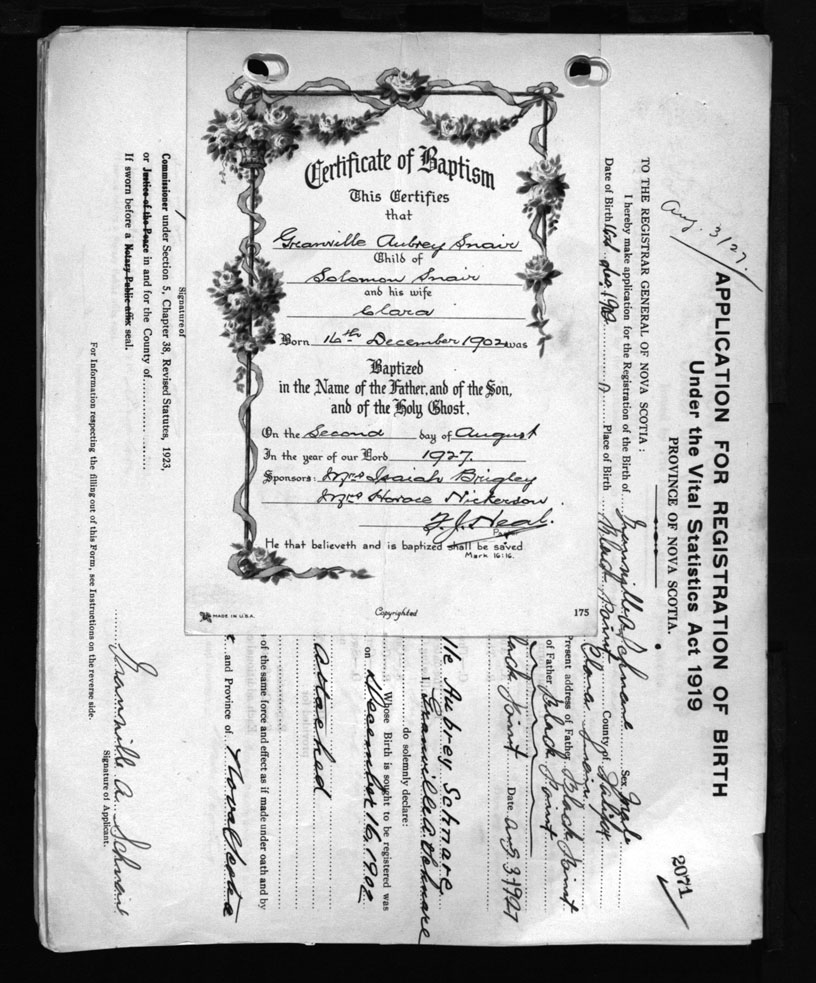 Certificate of Baptism
This Certifies
that
Granville Aubrey Snair
Child of
Solomon Snair
and his wife
Clara
Born 16th December 1902 was
Baptized
in the Name of the Father, and of the Son,
and of the Holy Ghost.
On the Second day of August
In the year of our Lord 1927.
Sponsors: Mrs Isaiah Brigley
Mrs Horace Nickerson
F. J. Neal.
He that believeth and is baptized shall be saved
Mark 16:16.
MADE IN U.S.A.
Copyrighted
175
Aug. 3/27.
2071
APPLICATION FOR REGISTRATION OF BIRTH
Under the Vital Statistics Act 1919
PROVINCE OF NOVA SCOTIA.
TO THE REGISTRAR GENERAL OF NOVA SCOTIA:
I hereby make application for the Registration of the Birth of Granville A Schnare Sex Male
Date of Birth Place of Birth Black Point County of Halifax
Clara
Present address of Father Black Point
of Father Black Point
lack Point Date Aug 3 1927
lle Aubrey Schnare
I, Granville A. Schnare
do solemnly declare:
Whose Birth is sought to be registered was
on December 16, 1902
attached
of the same force and effect as if made under oath and by
and Province of Nova Scotia
Granville A. Schnare
Signature of Applicant.
Signature of
Commissioner under Section 5, Chapter 38, Revised Statutes, 1923,
or Justice of the Peace in and for the County of
If sworn before a Notary Public affix seal.
For Information respecting the filling out of this Form, see Instructions on the reverse side.